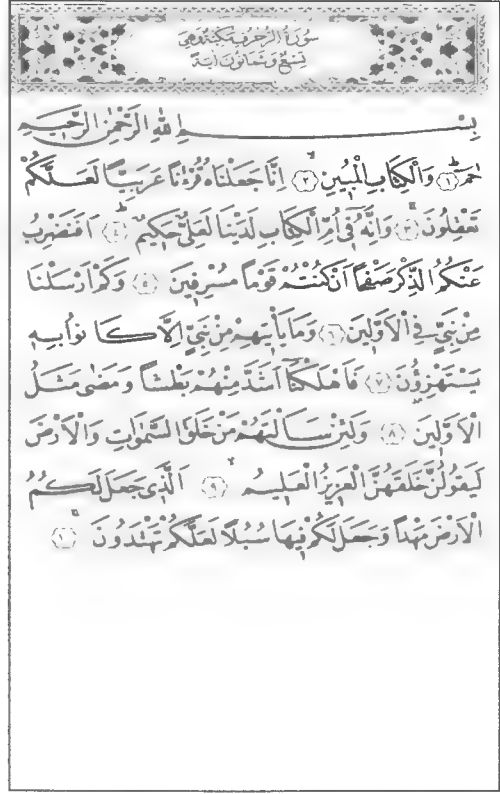 سُورَةُ الزُّخْرُفِ مَكِّيَّةٌ وَهِيَ
تِسْعٌ وَثَمَانُونَ اٰيَةً
بِسْمِ اللّٰهِ الرَّحْمٰنِ الرَّحِيمِ
حٰمٓ ﴿١﴾ وَالْكِتَابِ الْمُبِينِ ﴿٢﴾ اِنَّا جَعَلْنَاهُ قُرْءٰنًا عَرَبِيًّا لَعَلَّكُمْ
تَعْقِلُونَ ﴿٣﴾ وَاِنَّهُ فٓى اُمِّ الْكِتَابِ لَدَيْنَا لَعَلِىٌّ حَكِيمٌ ﴿٤﴾ اَفَنَضْرِبُ
عَنْكُمُ الذِّكْرَ صَفْحًا اَنْ كُنْتُمْ قَوْمًا مُسْرِفِينَ ﴿٥﴾ وَكَمْ اَرْسَلْنَا
مِنْ نَبِىٍّ فِى الْاَوَّلِينَ ﴿٦﴾ وَمَا يَأْتِيهِمْ مِنْ نَبِىٍّ اِلَّا كَانُوا بِهِ
يَسْتَهْزِؤُنَ ﴿٧﴾ فَاَهْلَكْنَٓا اَشَدَّ مِنْهُمْ بَطْشًا وَمَضٰى مَثَلُ
الْاَوَّلِينَ ﴿٨﴾ وَلَئِنْ سَاَلْتَهُمْ مَنْ خَلَقَ السَّمٰوَاتِ وَالْاَرْضَ
لَيَقُولُنَّ خَلَقَهُنَّ الْعَزِيزُ الْعَلِيمُ ﴿٩﴾ اَلَّذِى جَعَلَ لَكُمُ
الْاَرْضَ مَهْدًا وَجَعَلَ لَكُمْ فِيهَا سُبُلًا لَعَلَّكُمْ تَهْتَدُونَ ﴿١٠﴾